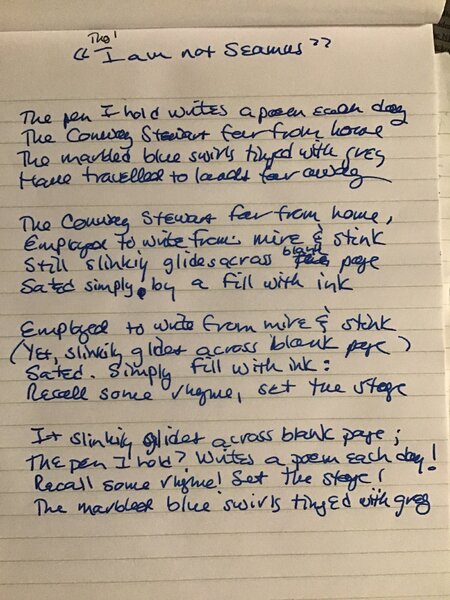 Tho'
"I am not Seamus"
The pen I hold writes a poem each day
The Conway Stewart far from home
The marbled blue swirls tinged with grey
Have travelled to lands far away
The Conway Stewart far from home,
Employed to write from mire & stink
Still slinkily glides across blank page
Sated simply by a fill with ink
Employed to write from mire & stink
(Yet, slinkily glides across blank page)
Sated. Simply fill with ink:
Recall some rhyme, set the stage
It slinkily glides across blank page;
The pen I hold? Writes a poem each day!
Recall some rhyme! Set the stage!
The marbled blue swirls tinged with grey